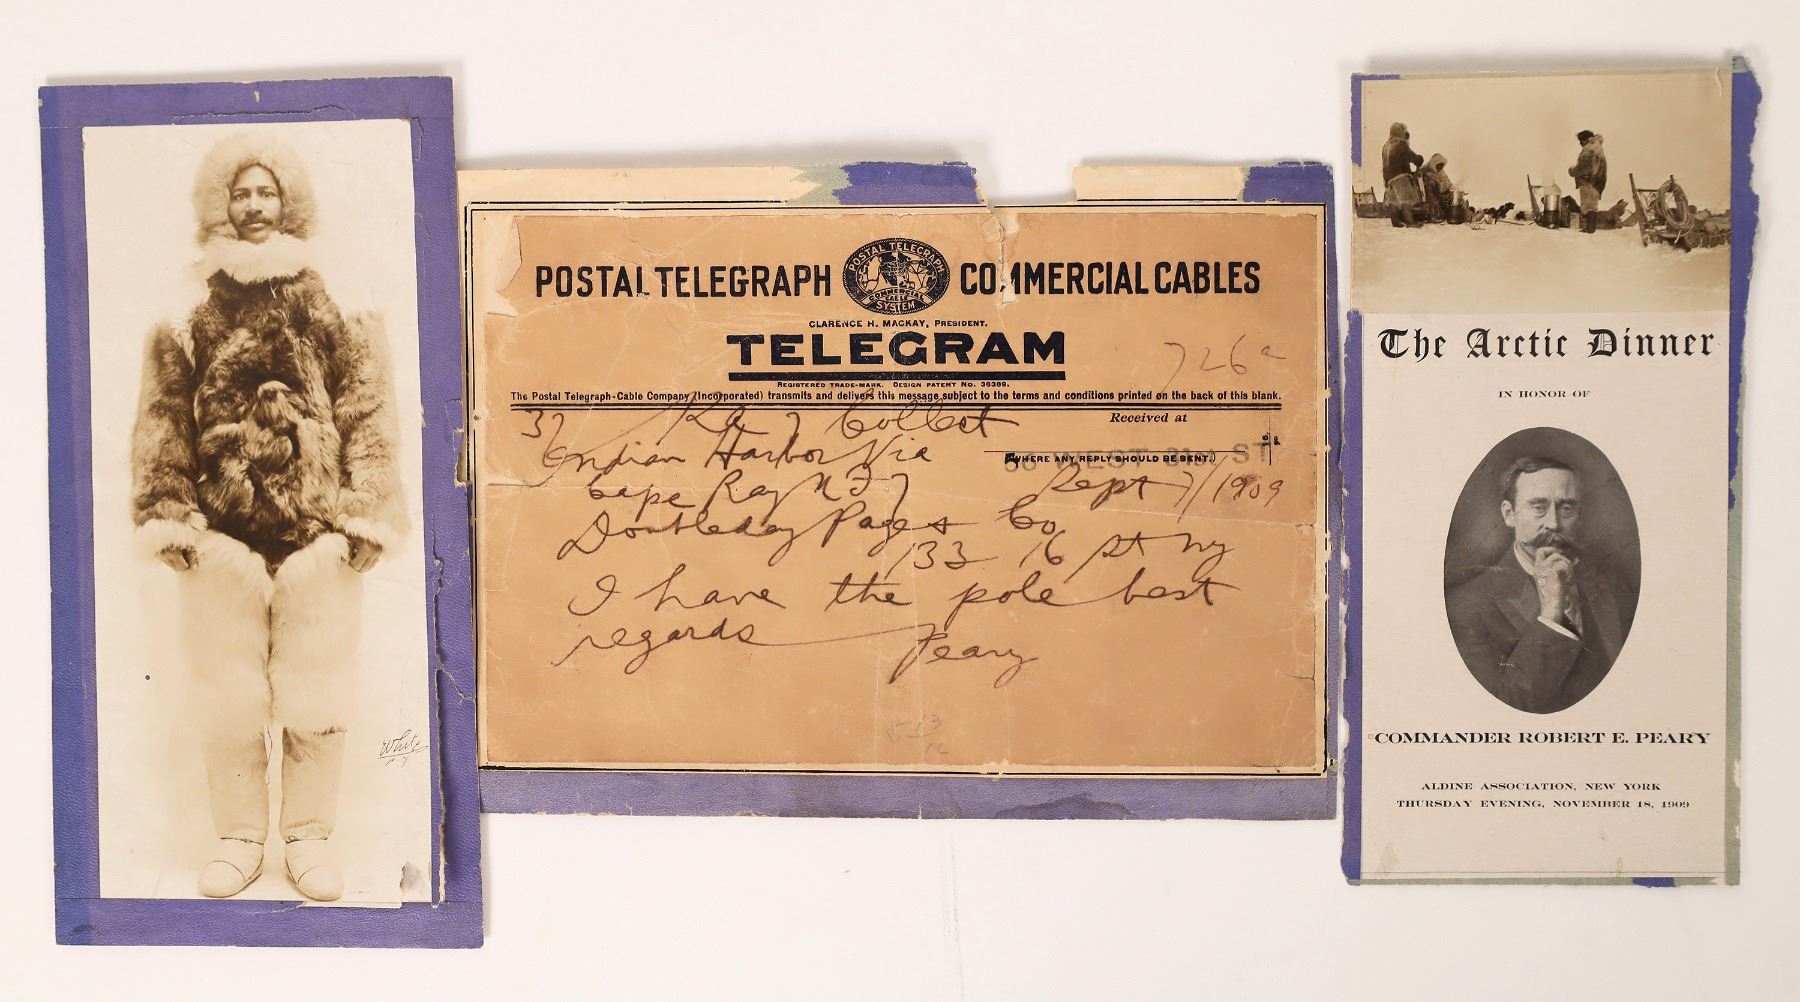 White
N-Y
POSTAL TELEGRAPH COMMERCIAL CABLES
POSTAL TELEGRAPH
COMMERCIAL
CABLE
SYSTEM
CLARENCE H. MACKAY, PRESIDENT.
TELEGRAM
726a
REGISTERED TRADE-MARK. DESIGN PATENT No. 36369.
The Postal Telegraph-Cable Company (Incorporated) transmits and delivers this message subject to the terms and conditions printed on the back of this blank.
37 Ra 7 Collect
Received at
Indian Harbor Via
(WHERE ANY REPLY SHOULD BE SENT.)
WEST ST
Cape Ray N F 7 Sept 7/1909
Doubleday Page & Co
133 16 St NY
I have the pole best
regards Peary
The Arctic Dinner
IN HONOR OF
COMMANDER ROBERT E. PEARY
ALDINE ASSOCIATION, NEW YORK
THURSDAY EVENING, NOVEMBER 18, 1909